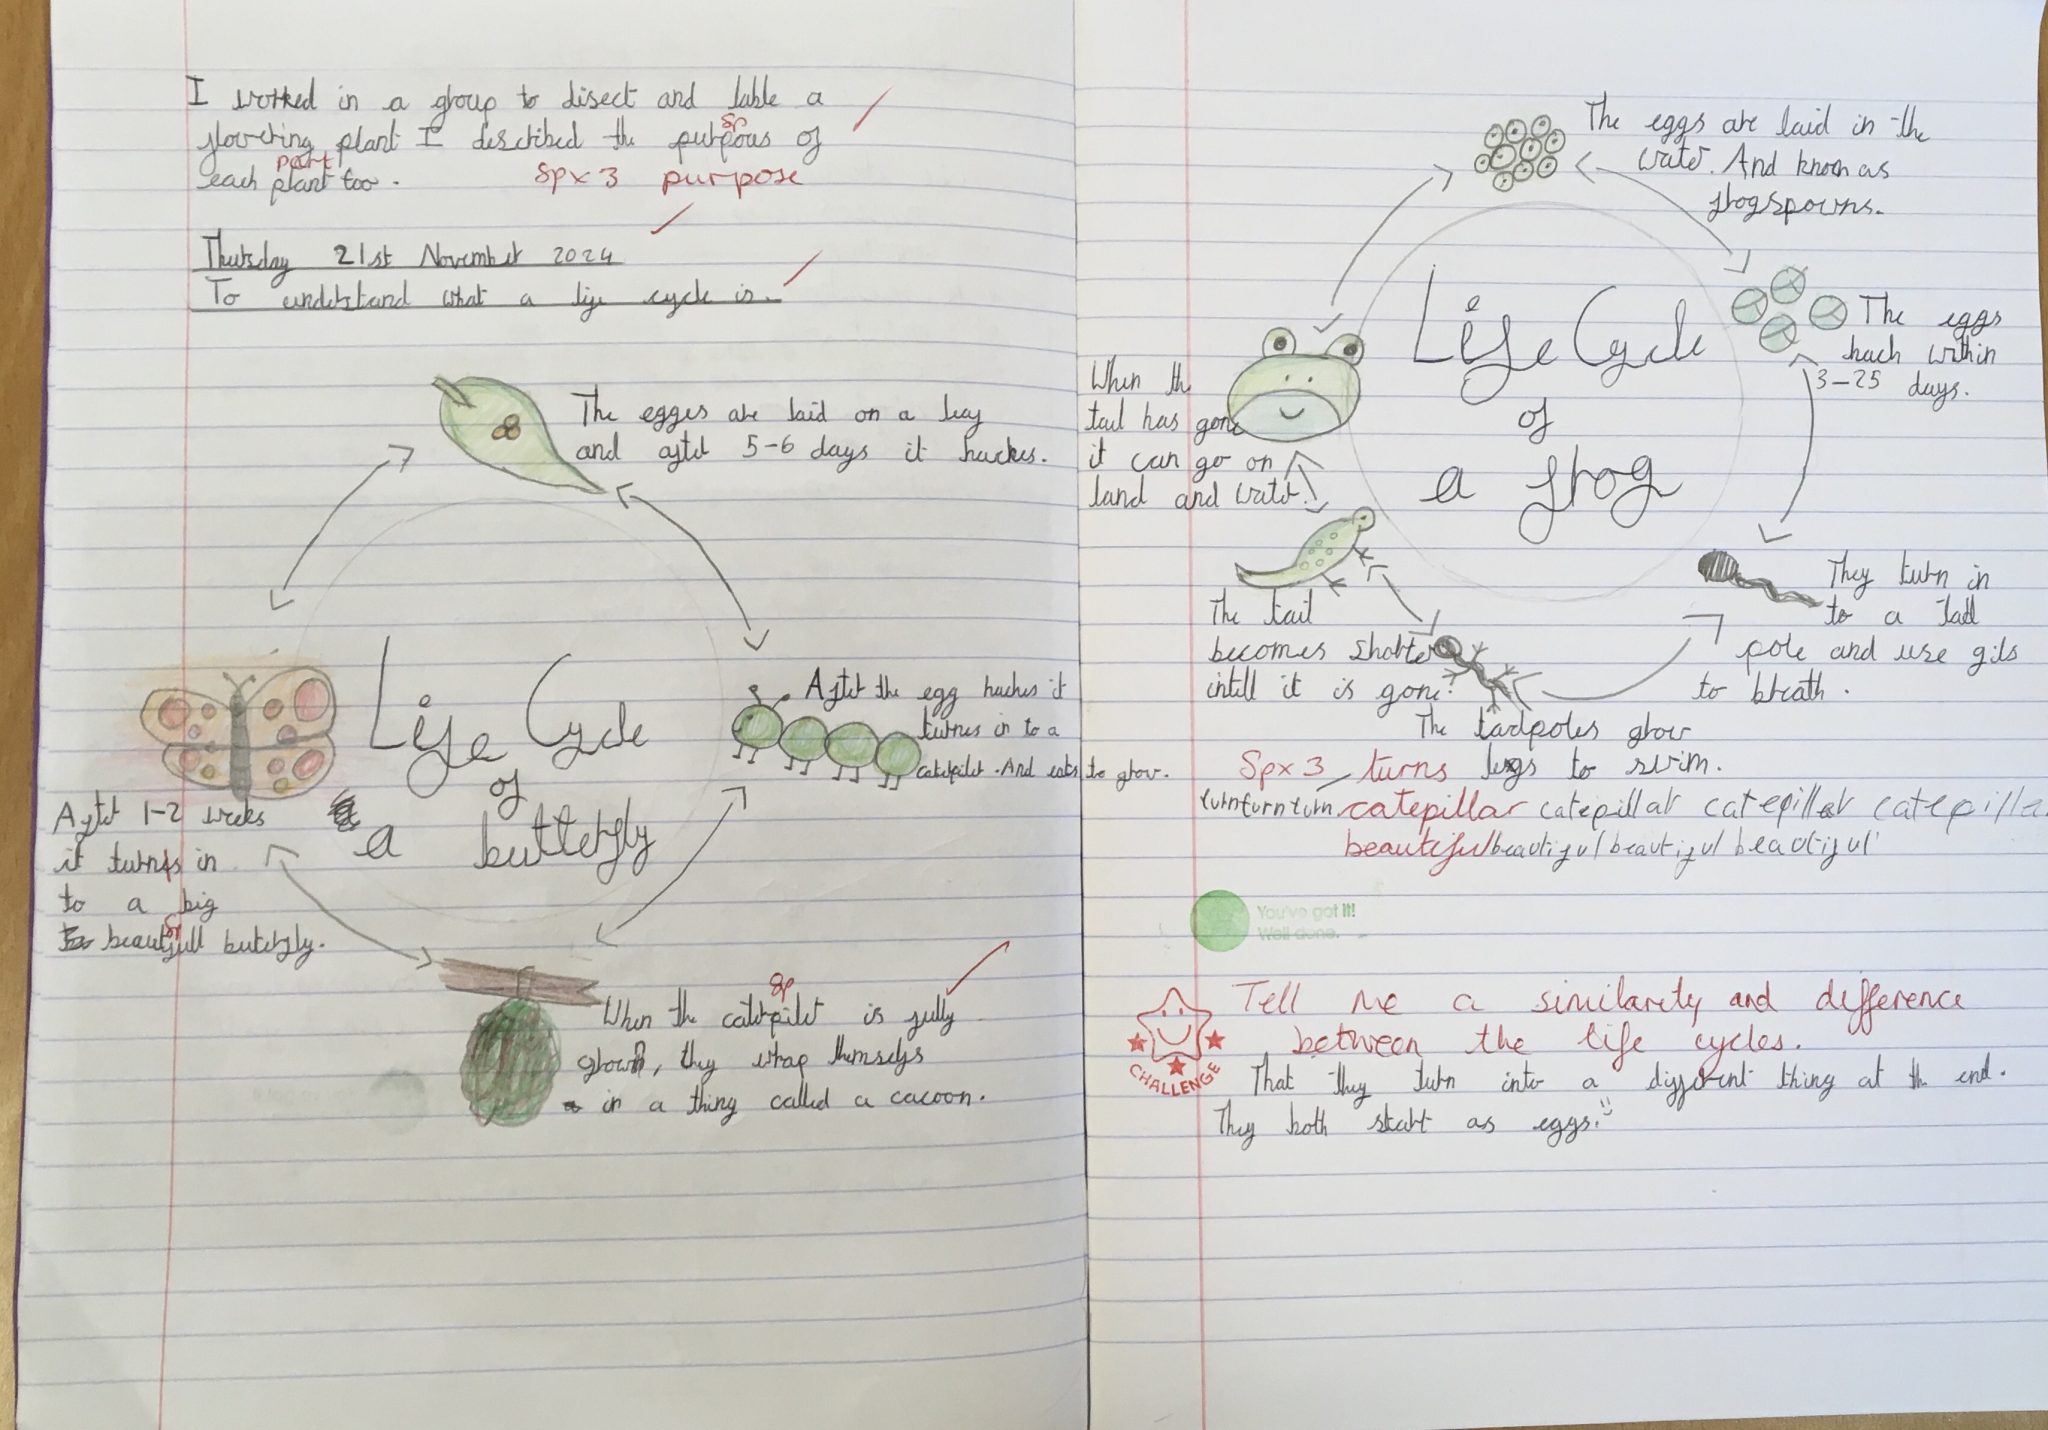 I worked in a group to disect and lable a
flowering plant I described the purpous of
sp
part
each plant too.
Spx3 purpose
Thursday 21st November 2024
To understand what a life cycle is.
The egges are laid on a leaf
and after 5-6 days it haches.
After the egg haches it
turnes in to a
caterpiler. And eats to grow.
Life Cycle
of
a butterfly
After 1-2 weeks
it turns in
to a big
sp
beautifull buterfly.
sp
When the caterpiler is fully
grown, they wrap themselfs
in a thing called a cacoon.
The eggs are laid in the
water. And known as
frogspowns.
Life Cycle
of
a frog
The eggs
hach within
3-25 days.
When the
tail has gone
it can go on
land and water.
They turn in
to a tad
pole and use gils
to breath.
The tail
becomes shorter
intill it is gone.
The tadpoles grow
legs to swim.
Spx3 turns
turn turn turn catepillar catepillar catepillar catepilla
beautiful beautiful beautiful beautiful
You've got it!
Well done.
CHALLENGE
Tell me a similarity and difference
between the life cycles.
That they turn into a different thing at the end.
They both start as eggs.